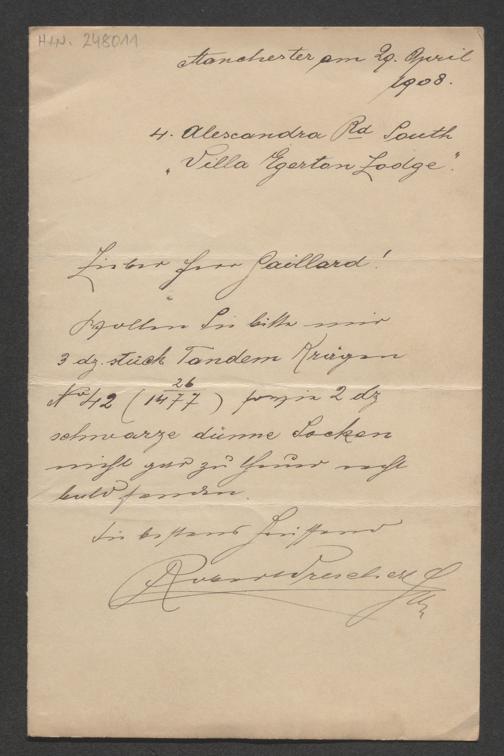 H.I.N. 248011
Manchester am 29. April
1908.
4. Alexandra Rd South
„Villa Egerton Lodge".
Lieber Herr Gaillard!
Wollen Sie bitte mir
3 dz. stück Tandem Krägen
No 42 (14 26/77) sowie 2 dz
schwarze dünne Socken
nicht gar zu theuer recht
bald senden.
Sie bestens Grüssend
Robert